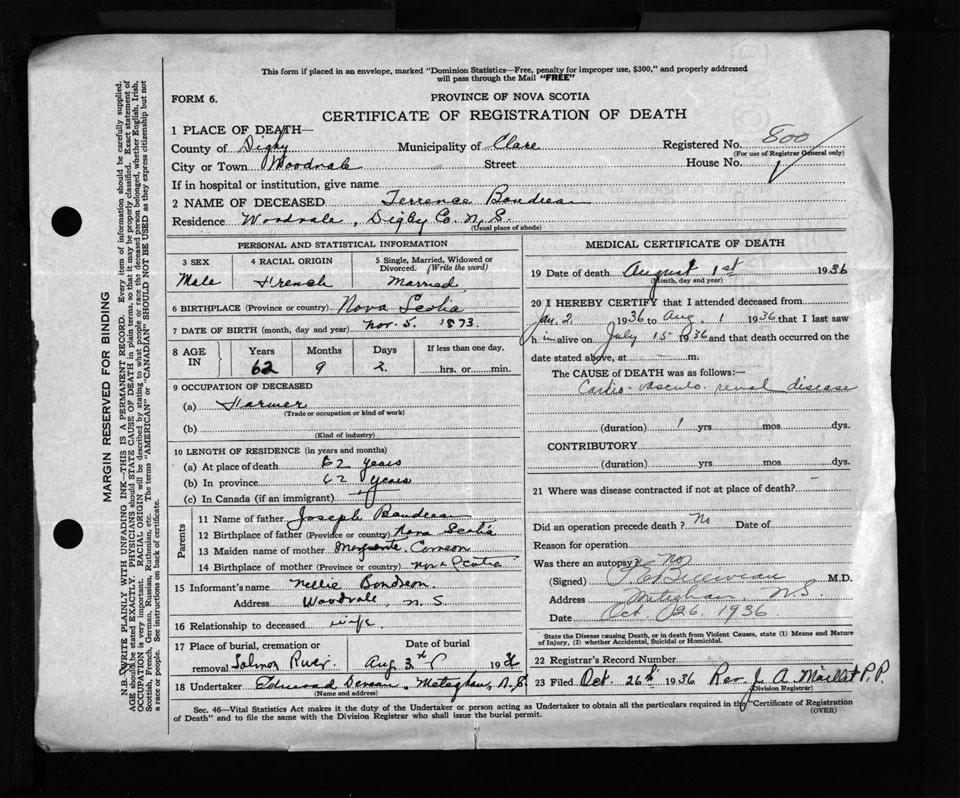 This form if placed in an envelope, marked "Dominion Statistics—Free, penalty for improper use, $300," and properly addressed
will pass through the Mail "FREE"
FORM 6.
PROVINCE OF NOVA SCOTIA
CERTIFICATE OF REGISTRATION OF DEATH
1 PLACE OF DEATH—
Registered No. 800
(For use of Registrar General only)
County of Digby Municipality of Clare
City or Town Woodvale Street House No.
If in hospital or institution, give name
2 NAME OF DECEASED Terrence Boudreau
Residence Woodvale, Digby Co. N.S.
(Usual place of abode)
PERSONAL AND STATISTICAL INFORMATION
3 SEX 4 RACIAL ORIGIN 5 Single, Married, Widowed or
Divorced. (Write the word)
Male French Married
6 BIRTHPLACE (Province or country) Nova Scotia
7 DATE OF BIRTH (month, day and year) Nov. 5. 1873.
8 AGE IN Years Months Days If less than one day,
62 9 2. hrs. or min.
9 OCCUPATION OF DECEASED
(a) Farmer
(Trade or occupation or kind of work)
(b)
(Kind of industry)
10 LENGTH OF RESIDENCE (in years and months)
(a) At place of death 62 years
(b) In province 62 years
(c) In Canada (if an immigrant)
Parents
11 Name of father Joseph Boudreau
12 Birthplace of father (Province or country) Nova Scotia
13 Maiden name of mother Comeau
14 Birthplace of mother (Province or country) Nova Scotia
15 Informant's name Nellie Boudreau
Address Woodvale, N.S.
16 Relationship to deceased wife
17 Place of burial, cremation or Date of burial
removal Salmon River. Aug 3rd 1936
18 Undertaker Edmund Meteghan, N.S.
(Name and address)
MEDICAL CERTIFICATE OF DEATH
19 Date of death August 1st 1936
(month, day and year)
20 I HEREBY CERTIFY that I attended deceased from
Jan. 2 1936 to Aug. 1 1936 that I last saw
him alive on July 15 1936 and that death occurred on the
date stated above, at — m.
The CAUSE of DEATH was as follows:—
Cardio-vasculo-renal disease
(duration) 1 yrs mos dys.
CONTRIBUTORY
(duration) yrs mos dys.
21 Where was disease contracted if not at place of death? —
Did an operation precede death? No Date of
Reason for operation
Was there an autopsy? No
(Signed) Belliveau M.D.
Address Meteghan, N.S.
Date Oct. 26, 1936
State the Disease causing Death, or in death from Violent Causes, state (1) Means and Nature
of Injury, (2) whether Accidental, Suicidal or Homicidal.
22 Registrar's Record Number
23 Filed Oct. 26th 1936 Rev. J. A. Maillet P.P.
(Division Registrar)
Sec. 46—Vital Statistics Act makes it the duty of the Undertaker or person acting as Undertaker to obtain all the particulars required in the "Certificate of Registration
of Death" and to file the same with the Division Registrar who shall issue the burial permit.
(OVER)
MARGIN RESERVED FOR BINDING
N.B.—WRITE PLAINLY WITH UNFADING INK—THIS IS A PERMANENT RECORD. Every item of information should be carefully supplied.
AGE should be stated EXACTLY. PHYSICIANS should STATE CAUSE OF DEATH in plain terms, so that it may be properly classified. Exact statement of
OCCUPATION is very important. RACIAL ORIGIN will be described by stating to what people or race the deceased person belonged, whether English, Irish,
Scottish, French, German, Russian, Ruthenian, etc. The terms "AMERICAN" or "CANADIAN" SHOULD NOT BE USED as they express citizenship but not
a race or people. See instructions on back of certificate.